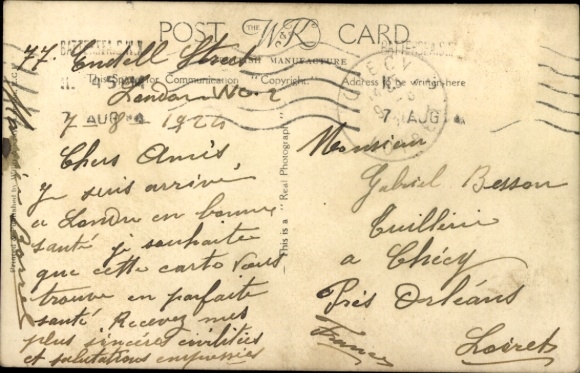 POST CARD
THE W & K
BRITISH MANUFACTURE
This Space for Communication "Copyright." Address to be written here
BATTERSEA. S.W.11.
4 5 PM
7 AUG
BATTERSEA. S.W.
7 AUG
CHECY
This is a "Real Photograph"
77 Endell Street
London WC2
7 8 1924
Chers Amis,
Je suis arrivé
a Londre en bonne
santé je souhaite
que cette carte vous
trouve en parfaite
santé Recevez mes
plus sincères civilités
et salutations empressées
Monsieur
Gabriel Besson
Tuillerie
a Chécy
Près Orléans
Loiret
France